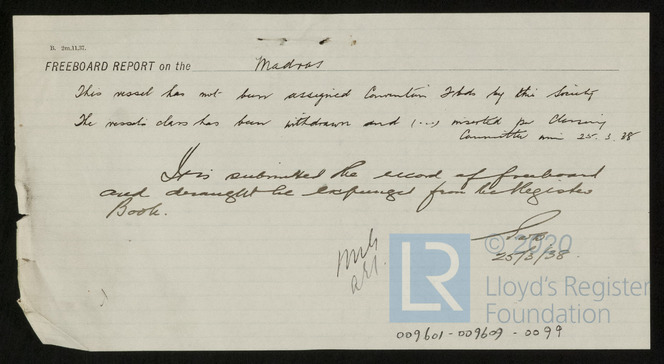 B. 2m,11,37.
FREEBOARD REPORT on the Madras
This vessel has not been assigned Convention Fbds by this Society
The vessels class has been withdrawn and (...) inserted per Classing
Committee min 25.3.38
It is submitted the record of freeboard
and draught be expunged from the Register
Book.
25/3/38.
© 2020
LR
Lloyd's Register
Foundation
009601-009609-0099